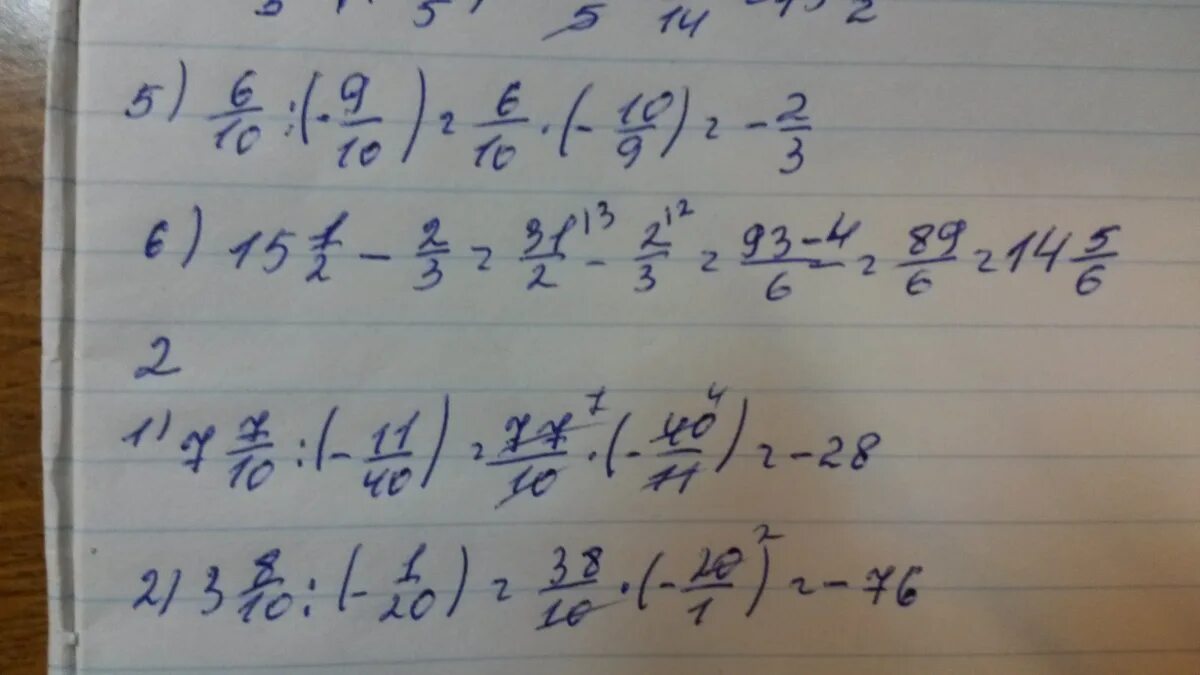 5 14 2
5) 6/10 : (- 9/10) = 6/10 · (- 10/9) = - 2/3
6) 15 1/2 - 2/3 = 31/2 |3 - 2/3 |2 = 93-4/6 = 89/6 = 14 5/6
2
1) 7 7/10 : (- 11/40) = 77/10 7 · (- 40/11 4) = -28
2) 3 8/10 : (- 1/20) = 38/10 · (- 20/1 2) = -76